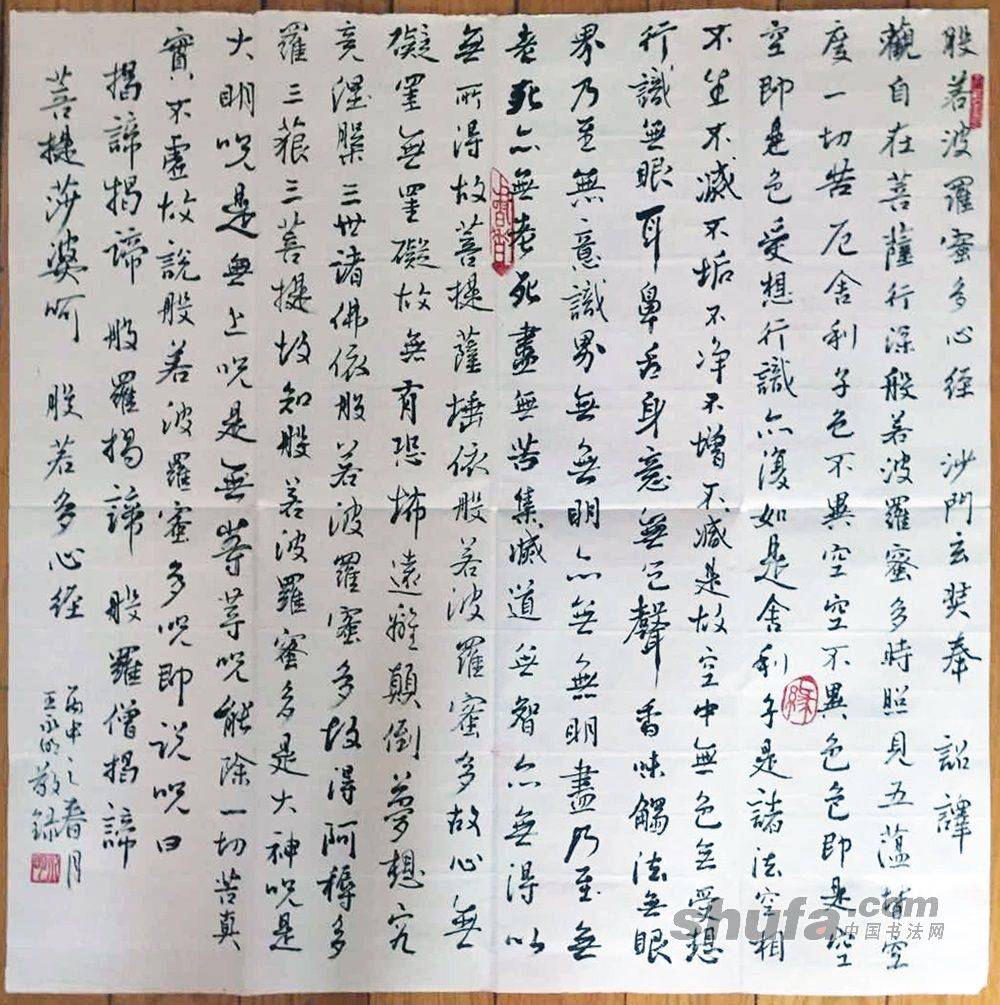 般若波羅蜜多心経 沙門玄奘奉 詔譯
觀自在菩薩行深般若波羅蜜多時照見五蕰皆空
度一切苦厄舍利子色不異空空不異色色即是空
空即是色受想行識亦復如是舍利子是諸法空相
不生不滅不垢不净不增不减是故空中無色无受想
行識無眼耳鼻舌身意無色聲香味觸法無眼
界乃至無意識界無無明亦無無明盡乃至無
老死亦無老死盡無苦集滅道無智亦無得以
無所得故菩提薩埵依般若波羅蜜多故心無
礙罣無罣礙故無有恐怖遠離顛倒夢想究
竟涅槃三世諸佛依般若波羅蜜多故得阿耨多
羅三藐三菩提故知般若波羅蜜多是大神呪是
大明呪是無上呪是無等等呪能除一切苦真
實不虛故説般若波羅蜜多呪即说呪曰
揭諦揭諦 般羅揭諦 般羅僧揭諦
菩提莎婆呵 般若多心経
丙申之春月
王永明敬録
緣
shufa.com
中国书法网